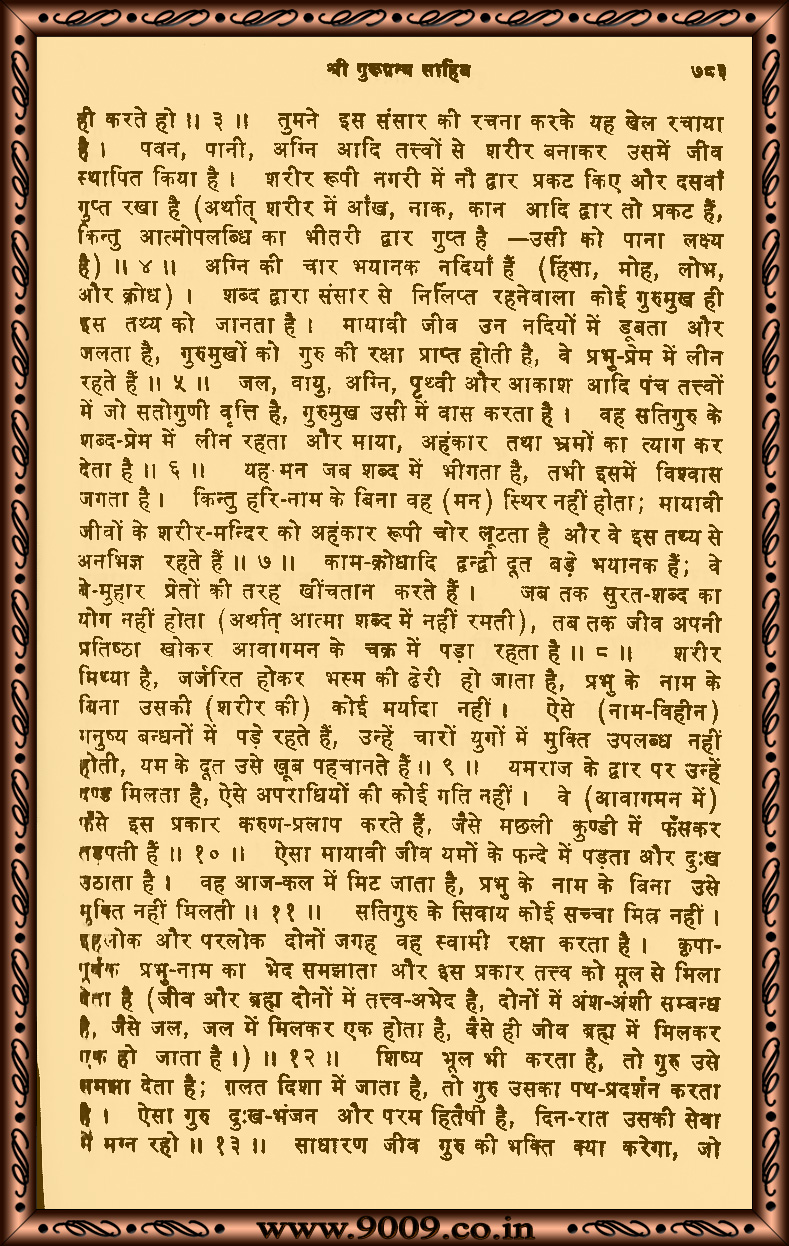 श्री गुरूग्रन्थ साहिब ७८३
ही करते हो ॥ ३ ॥ तुमने इस संसार की रचना करके यह खेल रचाया
है । पवन, पानी, अग्नि आदि तत्त्वों से शरीर बनाकर उसमें जीव
स्थापित किया है । शरीर रूपी नगरी में नौ द्वार प्रकट किए और दसवाँ
गुप्त रखा है (अर्थात् शरीर में आँख, नाक, कान आदि द्वार तो प्रकट हैं,
किन्तु आत्मोपलब्धि का भीतरी द्वार गुप्त है —उसी को पाना लक्ष्य
है) ॥ ४ ॥ अग्नि की चार भयानक नदियाँ हैं (हिंसा, मोह, लोभ,
और क्रोध) । शब्द द्वारा संसार से निर्लिप्त रहनेवाला कोई गुरुमुख ही
इस तथ्य को जानता है । मायावी जीव उन नदियों में डूबता और
जलता है, गुरुमुखों को गुरु की रक्षा प्राप्त होती है, वे प्रभु-प्रेम में लीन
रहते हैं ॥ ५ ॥ जल, वायु, अग्नि, पृथ्वी और आकाश आदि पंच तत्त्वों
में जो सतोगुणी वृत्ति है, गुरुमुख उसी में वास करता है । वह सतिगुरु के
शब्द-प्रेम में लीन रहता और माया, अहंकार तथा भ्रमों का त्याग कर
देता है ॥ ६ ॥ यह मन जब शब्द में भीगता है, तभी इसमें विश्वास
जगता है । किन्तु हरि-नाम के बिना वह (मन) स्थिर नहीं होता; मायावी
जीवों के शरीर-मन्दिर को अहंकार रूपी चोर लूटता है और वे इस तथ्य से
अनभिज्ञ रहते हैं ॥ ७ ॥ काम-क्रोधादि द्वन्द्वी दूत बड़े भयानक हैं; वे
बे-मुहार प्रेतों की तरह खींचतान करते हैं । जब तक सुरत-शब्द का
योग नहीं होता (अर्थात् आत्मा शब्द में नहीं रमती), तब तक जीव अपनी
प्रतिष्ठा खोकर आवागमन के चक्र में पड़ा रहता है ॥ ८ ॥ शरीर
मिथ्या है, जर्जरित होकर भस्म की ढेरी हो जाता है, प्रभु के नाम के
बिना उसकी (शरीर की) कोई मर्यादा नहीं । ऐसे (नाम-विहीन)
मनुष्य बन्धनों में पड़े रहते हैं, उन्हें चारों युगों में मुक्ति उपलब्ध नहीं
होती, यम के दूत उसे खूब पहचानते हैं ॥ ९ ॥ यमराज के द्वार पर उन्हें
दण्ड मिलता है, ऐसे अपराधियों की कोई गति नहीं । वे (आवागमन में)
फँसे इस प्रकार करुण-प्रलाप करते हैं, जैसे मछली कुण्डी में फँसकर
तड़पती हैं ॥ १० ॥ ऐसा मायावी जीव यमों के फन्दे में पड़ता और दुःख
उठाता है । वह आज-कल में मिट जाता है, प्रभु के नाम के बिना उसे
मुक्ति नहीं मिलती ॥ ११ ॥ सतिगुरु के सिवाय कोई सच्चा मित्र नहीं ।
इहलोक और परलोक दोनों जगह वह स्वामी रक्षा करता है । कृपा-
पूर्वक प्रभु-नाम का भेद समझाता और इस प्रकार तत्त्व को मूल से मिला
देता है (जीव और ब्रह्म दोनों में तत्त्व-अभेद है, दोनों में अंश-अंशी सम्बन्ध
है, जैसे जल, जल में मिलकर एक होता है, वैसे ही जीव ब्रह्म में मिलकर
एक हो जाता है ।) ॥ १२ ॥ शिष्य भूल भी करता है, तो गुरु उसे
समझा देता है; ग़लत दिशा में जाता है, तो गुरु उसका पथ-प्रदर्शन करता
है । ऐसा गुरु दुःख-भंजन और परम हितैषी है, दिन-रात उसकी सेवा
में मग्न रहो ॥ १३ ॥ साधारण जीव गुरु की भक्ति क्या करेगा, जो
www.9009.co.in